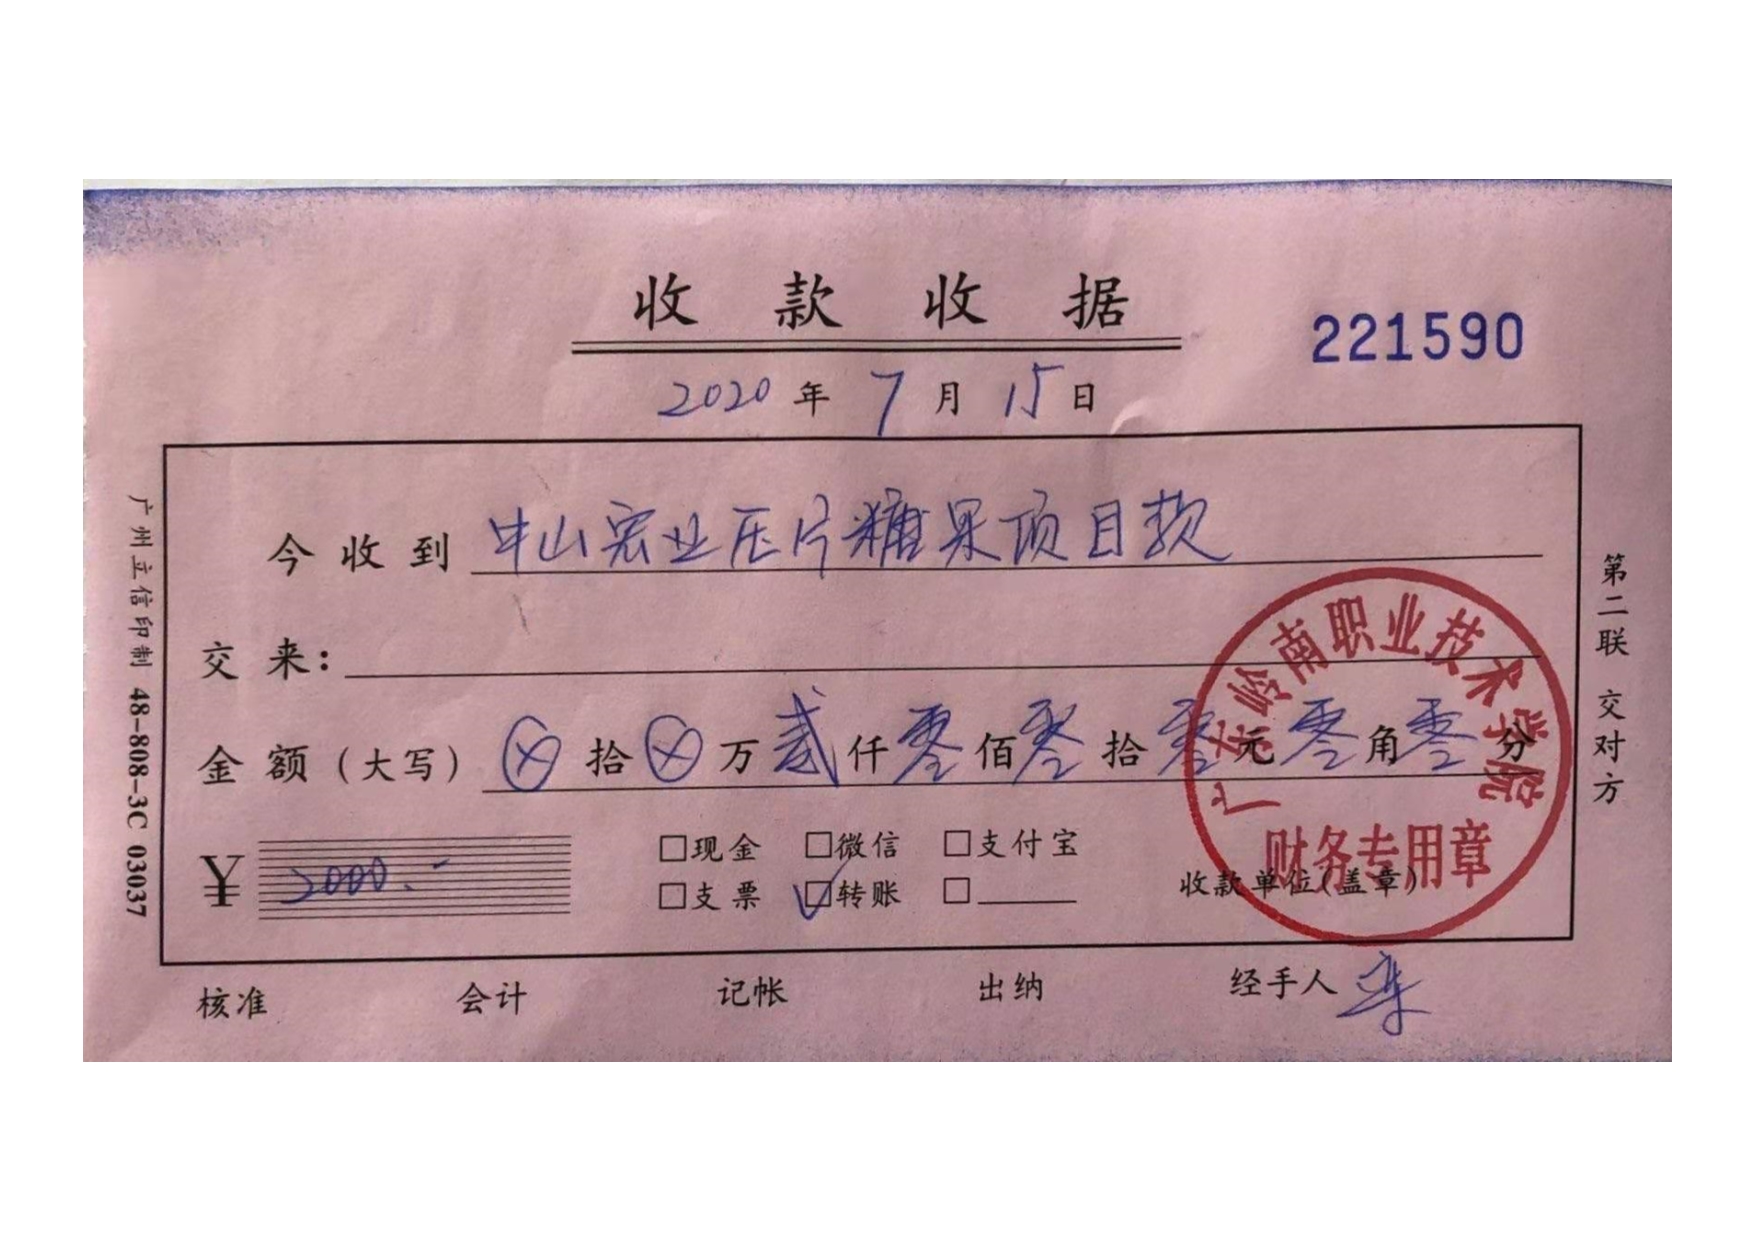 收款收据
221590
2020年7月15日
今收到 中山宏业压片糖果项目款
交来：
金额（大写）ⓧ拾ⓧ万贰仟零佰零拾零元零角零分
¥ 2000.-
□现金 □微信 □支付宝
□支票 ☑转账 □
收款单位(盖章)
广东岭南职业技术学院
财务专用章
核准 会计 记帐 出纳 经手人
广州立信印制 48-808-3C 03037
第二联 交对方